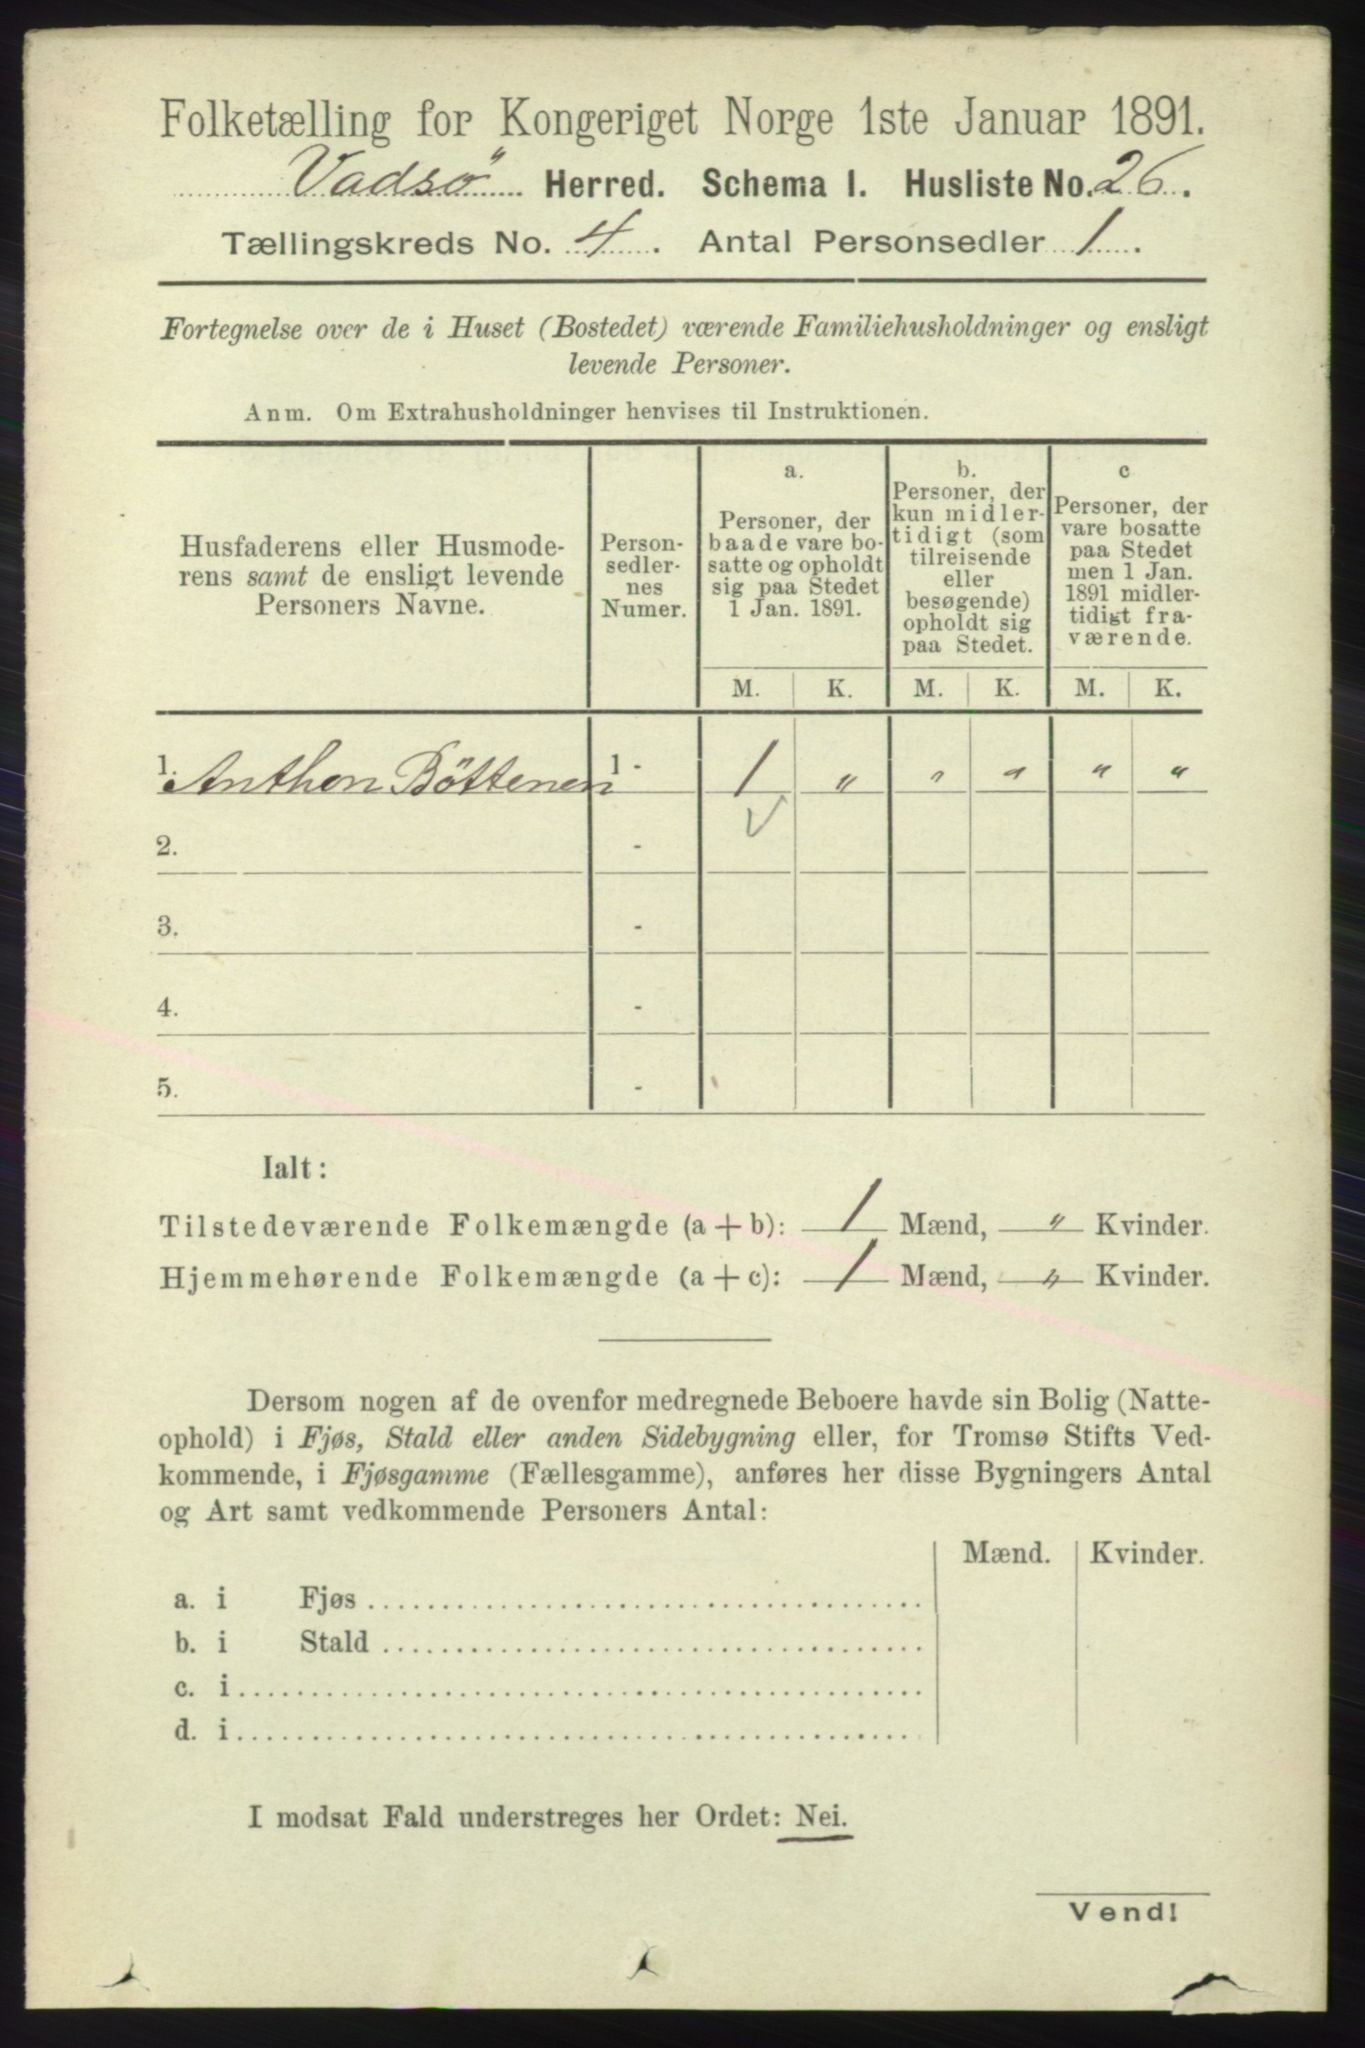 Folketælling for Kongeriget Norge 1ste Januar 1891.
Vadsö Herred. Schema I. Husliste No. 26.
Tællingskreds No. 4. Antal Personsedler 1.
Fortegnelse over de i Huset (Bostedet) værende Familiehusholdninger og ensligt
levende Personer.
Anm. Om Extrahusholdninger henvises til Instruktionen.
Husfaderens eller Husmode-
rens samt de ensligt levende
Personers Navne.
Person-
sedler-
nes
Numer.
a.
Personer, der
baade vare bo-
satte og opholdt
sig paa Stedet
1 Jan. 1891.
b.
Personer, der
kun midler-
tidigt (som
tilreisende
eller
besøgende)
opholdt sig
paa Stedet.
c
Personer, der
vare bosatte
paa Stedet
men 1 Jan.
1891 midler-
tidigt fra-
værende.
M. K. M. K. M. K.
1. Anthon Böttenen 1 - 1 " " " " "
2. -
3. -
4. -
5. -
Ialt:
Tilstedeværende Folkemængde (a + b): 1 Mænd, " Kvinder.
Hjemmehørende Folkemængde (a + c): 1 Mænd, " Kvinder.
Dersom nogen af de ovenfor medregnede Beboere havde sin Bolig (Natte-
ophold) i Fjøs, Stald eller anden Sidebygning eller, for Tromsø Stifts Ved-
kommende, i Fjøsgamme (Fællesgamme), anføres her disse Bygningers Antal
og Art samt vedkommende Personers Antal:
Mænd. Kvinder.
a. i Fjøs
b. i Stald
c. i
d. i
I modsat Fald understreges her Ordet: Nei.
Vend!